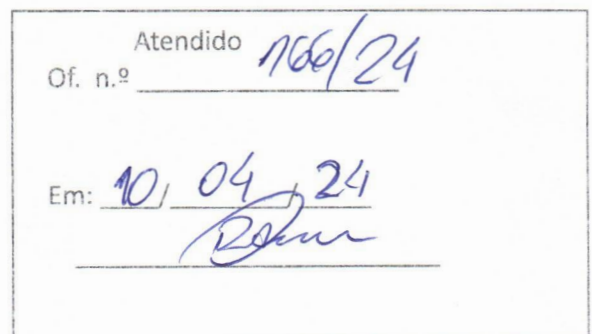 Atendido
Of. n.º 166/24
Em: 10/ 04 / 24